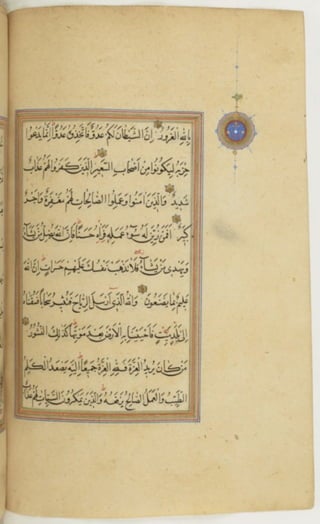 بِاللّٰهِ الْغَرُورُ اِنَّ الشَّيْطَانَ لَكُمْ عَدُوٌّ فَاتَّخِذُوهُ عَدُوًّا اِنَّمَا يَدْعُوا
حِزْبَهُ لِيَكُونُوا مِنْ اَصْحَابِ السَّعِيرِ الَّذِينَ كَفَرُوا لَهُمْ عَذَابٌ
شَدِيدٌ وَالَّذِينَ اٰمَنُوا وَعَمِلُوا الصَّالِحَاتِ لَهُمْ مَغْفِرَةٌ وَاَجْرٌ
كَبِيرٌ اَفَمَنْ زُيِّنَ لَهُ سُوءُ عَمَلِهِ فَرَاٰهُ حَسَنًا فَاِنَّ اللّٰهَ يُضِلُّ مَنْ يَشَاءُ
وَيَهْدِي مَنْ يَشَاءُ فَلَا تَذْهَبْ نَفْسُكَ عَلَيْهِمْ حَسَرَاتٍ اِنَّ اللّٰهَ
عَلِيمٌ بِمَا يَصْنَعُونَ وَاللّٰهُ الَّذِي اَرْسَلَ الرِّيَاحَ فَتُثِيرُ سَحَابًا فَسُقْنَاهُ
اِلَى بَلَدٍ مَيِّتٍ فَاَحْيَيْنَا بِهِ الْاَرْضَ بَعْدَ مَوْتِهَا كَذٰلِكَ النُّشُورُ
مَنْ كَانَ يُرِيدُ الْعِزَّةَ فَلِلّٰهِ الْعِزَّةُ جَمِيعًا اِلَيْهِ يَصْعَدُ الْكَلِمُ
الطَّيِّبُ وَالْعَمَلُ الصَّالِحُ يَرْفَعُهُ وَالَّذِينَ يَمْكُرُونَ السَّيِّئَاتِ لَهُمْ عَذَابٌ